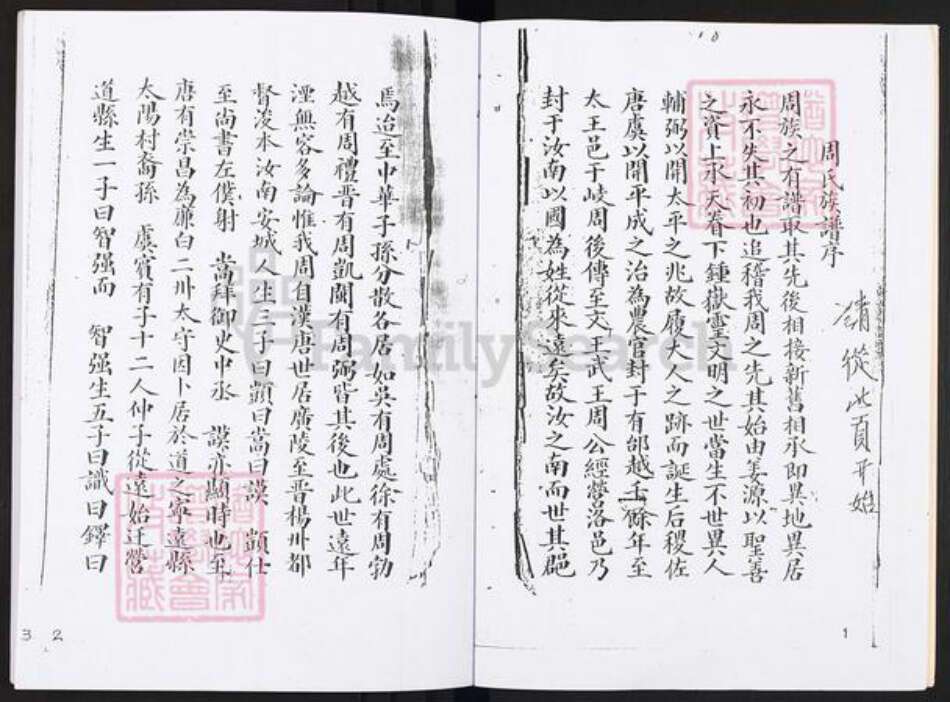 請從此頁开始
周氏族譜序
周族之有譜取其先後相接新舊相承即異地異居
永不失其初也追稽我周之先其始由姜源以聖善
之資上承天眷下鍾嶽靈文明之世當生不世異人
輔弼以開太平之兆故履大人之跡而誕生后稷佐
唐虞以開平成之治為農官封于有邰越千餘年至
太王邑于岐周後傳至文王武王周公經營洛邑乃
封于汝南以國為姓從來遠矣故汝之南而世其邑
1
焉迨至中華子孫分散各居如吳有周處徐有周勃
越有周禮晋有周凱闽有周弼皆其後也此世遠年
湮無容多論惟我周自漢唐世居廣陵至晋楊州都
督浚本汝南安城人生三子曰顗曰嵩曰謨 顗仕
至尚書左僕射 嵩拜御史中丞 謨亦顯時也至
唐有崇昌為廉白二州太守因卜居於道之寧遠縣
太陽村裔孫 虞賓有子十二人仲子從遠始迁營
道縣生一子曰智强而 智强生五子曰識曰鐸曰
3 2
FamilySearch